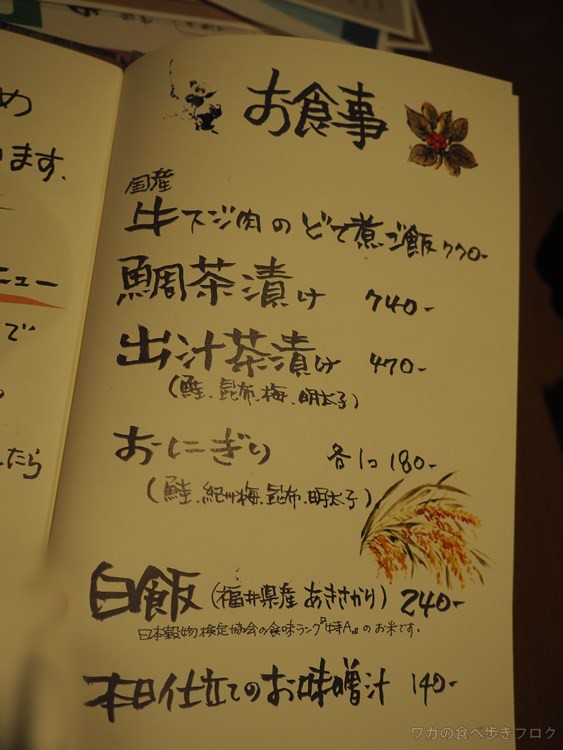 め
ます.
ニュー
で
たら
お食事
国産
牛スジ肉のどて煮ご飯 770-
鯛茶漬け 740-
出汁茶漬け 470-
(鮭、昆布、梅、明太子)
おにぎり 各1コ 180-
(鮭、紀州梅、昆布、明太子)
白飯(福井県産 あきさかり) 240-
日本穀物検定協会の食味ランク"特A"のお米です.
本日仕立てのお味噌汁 140-
ワカの食べ歩きブログ